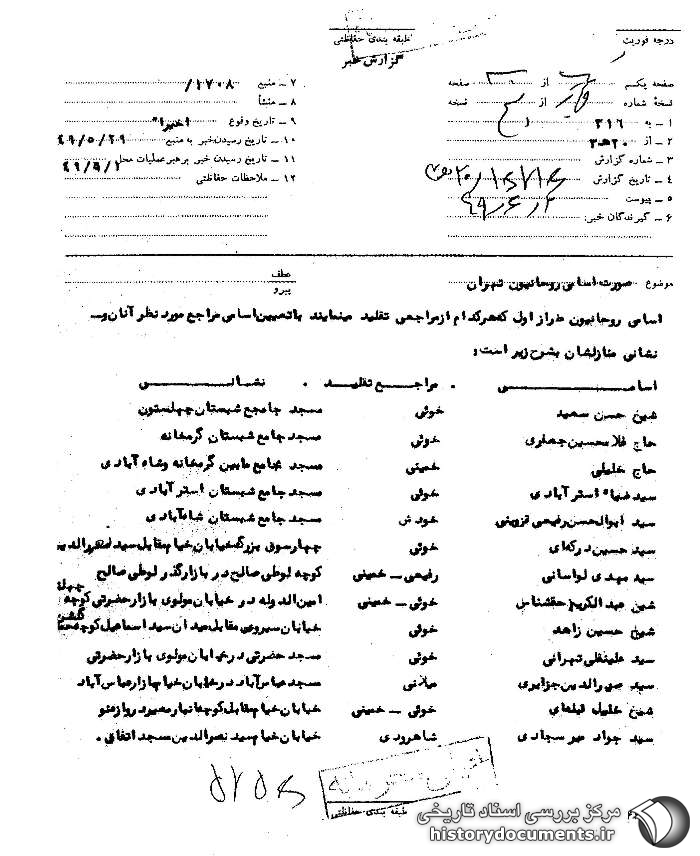 درجه فوریت
طبقه بندی حفاظتی
گزارش خبر
صفحه یکم از صفحه
نسخهٔ شماره از نسخه
۱ – به ۳۱۶
۲ – از ۲۰ه۳
۳ – شماره گزارش
۴ – تاریخ گزارش
۵ – پیوست
۶ – گیرندگان خبر:
۷ – منبع ۱۷۰۸/
۸ – منشأ
۹ – تاریخ وقوع اخیرا"
۱۰ – تاریخ رسیدن خبر به منبع ۴۹/۵/۲۹
۱۱ – تاریخ رسیدن خبر برهبر عملیات محل ۴۹/۹/۱
۱۲ – ملاحظات حفاظتی
موضوع صورت اسامی روحانیون تهران
عطف
پیرو
اسامی روحانیون طراز اول که هرکدام از مراجعی تقلید مینمایند با تعیین اسامی مراجع مورد نظر آنان و
نشانی منازلشان بشرح زیر است:
اسامی مراجع تقلید نشانی
شیخ حسن سعید خوئی مسجد جامع شبستان چهلستون
حاج غلامحسین جعفری خوئی مسجد جامع شبستان گرمخانه
حاج خلیلی خمینی مسجد جامع مابین گرمخانه وشاه آبادی
سید ضیاء استرآبادی خوئی مسجد جامع شبستان استرآبادی
سید ابوالحسن رفیعی قزوینی خودش مسجد جامع شبستان شاه‌آبادی
سید حسین درکه‌ای خوئی چهارسوق بزرگ خیابان خیام مقابل سید نصرالدین
سید مهدی لواسانی رفیعی – خمینی کوچه لوطی صالح در بازار گذر لوطی صالح
شیخ عبدالکریم حقشناس خوئی – خمینی امین الدوله در خیابان مولوی بازار حضرتی کوچه
شیخ حسین زاهد خوئی خیابان سیروس مقابل میدان سید اسماعیل کوچه
سید علینقی تهرانی خوئی مسجد حضرتی در خیابان مولوی بازار حضرتی
سید صدرالدین جزایری میلانی مسجد عباس‌آباد در خیابان خیام بازار عباس آباد
شیخ خلیل خوئی – خمینی خیابان خیام مقابل کوچه انبار معبر دروازه نو
سید جواد میرسجادی شاهرودی خیابان خیام سید نصرالدین مسجد اتفاقی .
طبقه بندی حفاظتی
مرکز بررسی اسناد تاریخی
historydocuments.ir